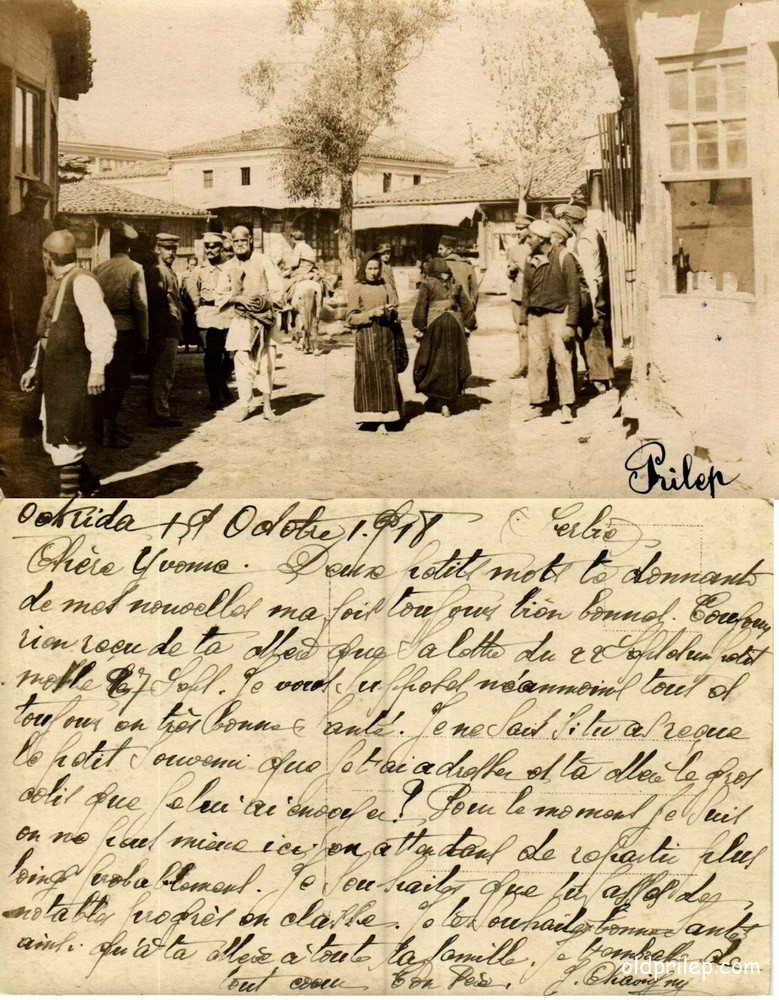 Prilep
Ochrida Octobre 1918 (Serbie)
Chère Yvonne. Deux petits mots te donnant
de mes nouvelles ma foi toujours bien bonnes. Toujours
rien reçu de ta Mère que sa lettre du 22 Sept d'un petit
mot le 27 Sept. Je vous suppose néanmoins tous
toujours en très bonne santé. Je ne sais si tu as reçue
le petit souvenir que je t'ai adresser et ta Mère le gros
colis que je lui ai envoyer? Pour le moment je suis
on ne peut mieux ici en attendant de repartir plus
loing probablement. Je souhaites que tu fasses des
notables progrès en classe. Je te souhaite bonne santé
ainsi qu'à ta Mère à toute la famille. Je t'embrasse de
tout coeur Ton Père. J. Chavigny
oldprilep.com